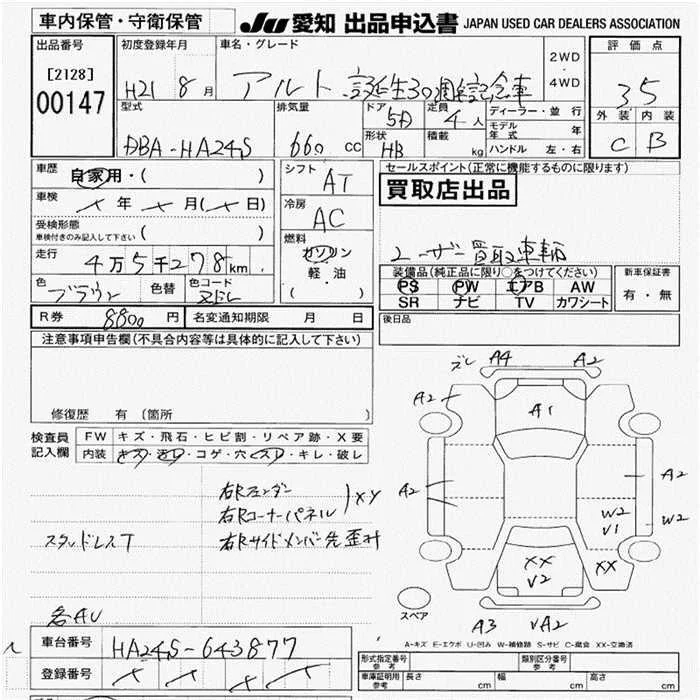 車内保管・守衛保管
JU 愛知 出品申込書 JAPAN USED CAR DEALERS ASSOCIATION
出品番号
[2128]
00147
初度登録年月
H21 8月
車名・グレード
アルト 誕生30周年記念車
2WD
4WD
評価点
35
外装 内装
C B
型式
DBA-HA24S
排気量
660 cc
ドア
5D
定員
4人
形状
HB
積載
kg
ディーラー・並行
モデル年式 年
ハンドル 左・右
車歴
自家用・( )
車検
年 月( 日)
受検形態
車検付きのみ記入して下さい ( )
走行
4万5千278km
色
ブラウン
色替
色コード
ZDL
シフト
AT
冷房
AC
燃料
ガソリン
軽・油
( )
セールスポイント(正常に機能するものに限ります)
買取店出品
ユーザー買取車輌
装備品(純正品に限り○をつけてください)
PS PW エアB AW
SR ナビ TV カワシート
新車保証書
有・無
後日品
R券 8800円
名変通知期限 月 日
注意事項申告欄(不具合内容等は具体的に記入して下さい)
修復歴 有 (箇所 )
検査員
記入欄
FW キズ・飛石・ヒビ割・リペア跡・X要
内装 キズ・汚レ・コゲ・穴・スレ・キレ・破レ
右Rフェンダー
右Rコーナーパネル
XY
スタッドレスT
右Rサイドメンバー先歪み
各AU
ズレ A4 A2
A2
A1
A2
A2
W2
V1
W2
XX
V2
XX
A3 VA2
スペア
A-キズ E-エクボ U-凹み W-補修跡 S-サビ C-腐食 XX-交換済
車台番号
HA24S-643877
登録番号
型式指定番号
参考
類別区分番号
参考
車庫証明用
参考
長さ cm
幅 cm
高さ cm